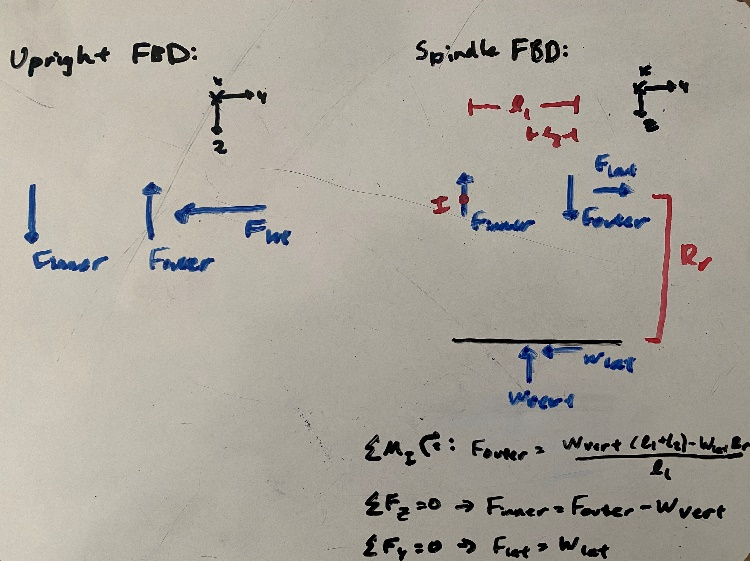 Upright FBD:
x
y
z
Finner
Fouter
Flat
Spindle FBD:
x
y
z
l₁
l₂
I
Finner
Fouter
Flat
Rr
Wlat
Wvert
ΣM_I: Fouter = (Wvert (l₁+l₂) - Wlat Rr) / l₁
ΣFz = 0 → Finner = Fouter - Wvert
ΣFy = 0 → Flat = Wlat